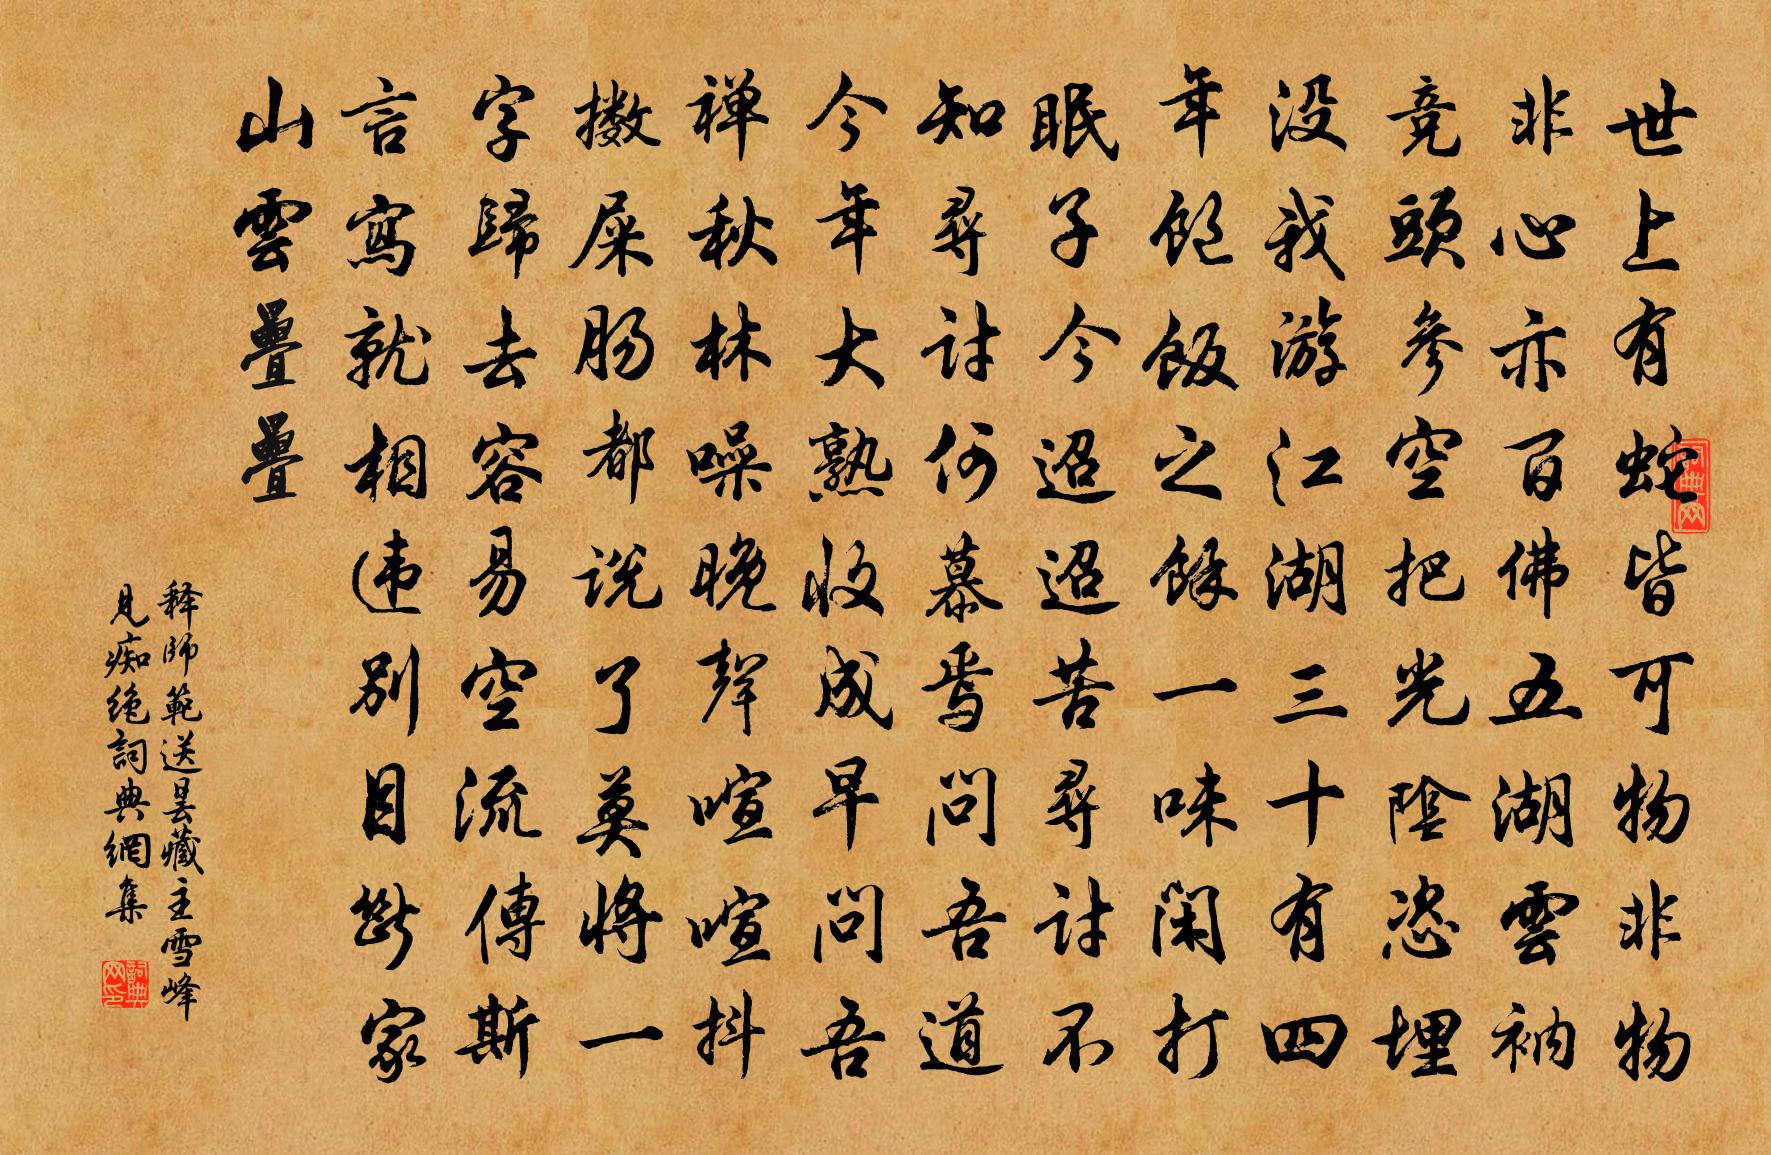 世上有蛇皆可物非物
非心亦百佛五湖雲衲
竞頭參空把光陰恣埋
没我游江湖三十有四
年飽飯之餘一味閑打
眠子今迢迢苦尋討不
知尋討何慕焉問吾道
今年大熟收成早問吾
禅秋林噪晚聲喧喧抖
擞屎肠都说了莫將一
字歸去容易空流傳斯
言寫就相违别目斷家
山雲疊疊
释師範送昙藏主雪峰
見痴绝詞典網集
詞典网印